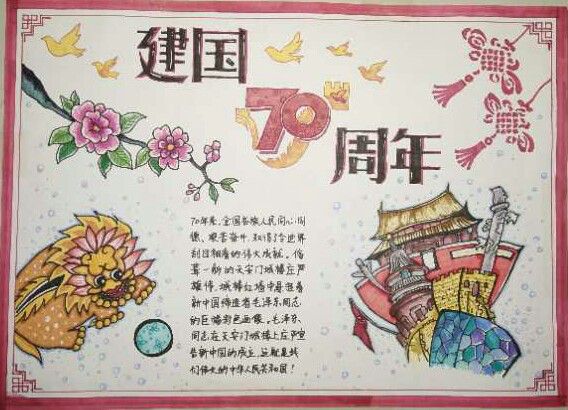 建国
70
周年
70年来,全国各族人民同心同
德、艰苦奋斗,取得了令世界
刮目相看的伟大成就。俗
一新的天安门城楼庄严
雄伟,城楼红墙中悬挂着
新中国缔造者毛泽东同志
的巨幅彩色画像。毛泽东
同志在天安门城楼上庄严宣
告新中国的成立,这就是我
们伟大的中华人民共和国!